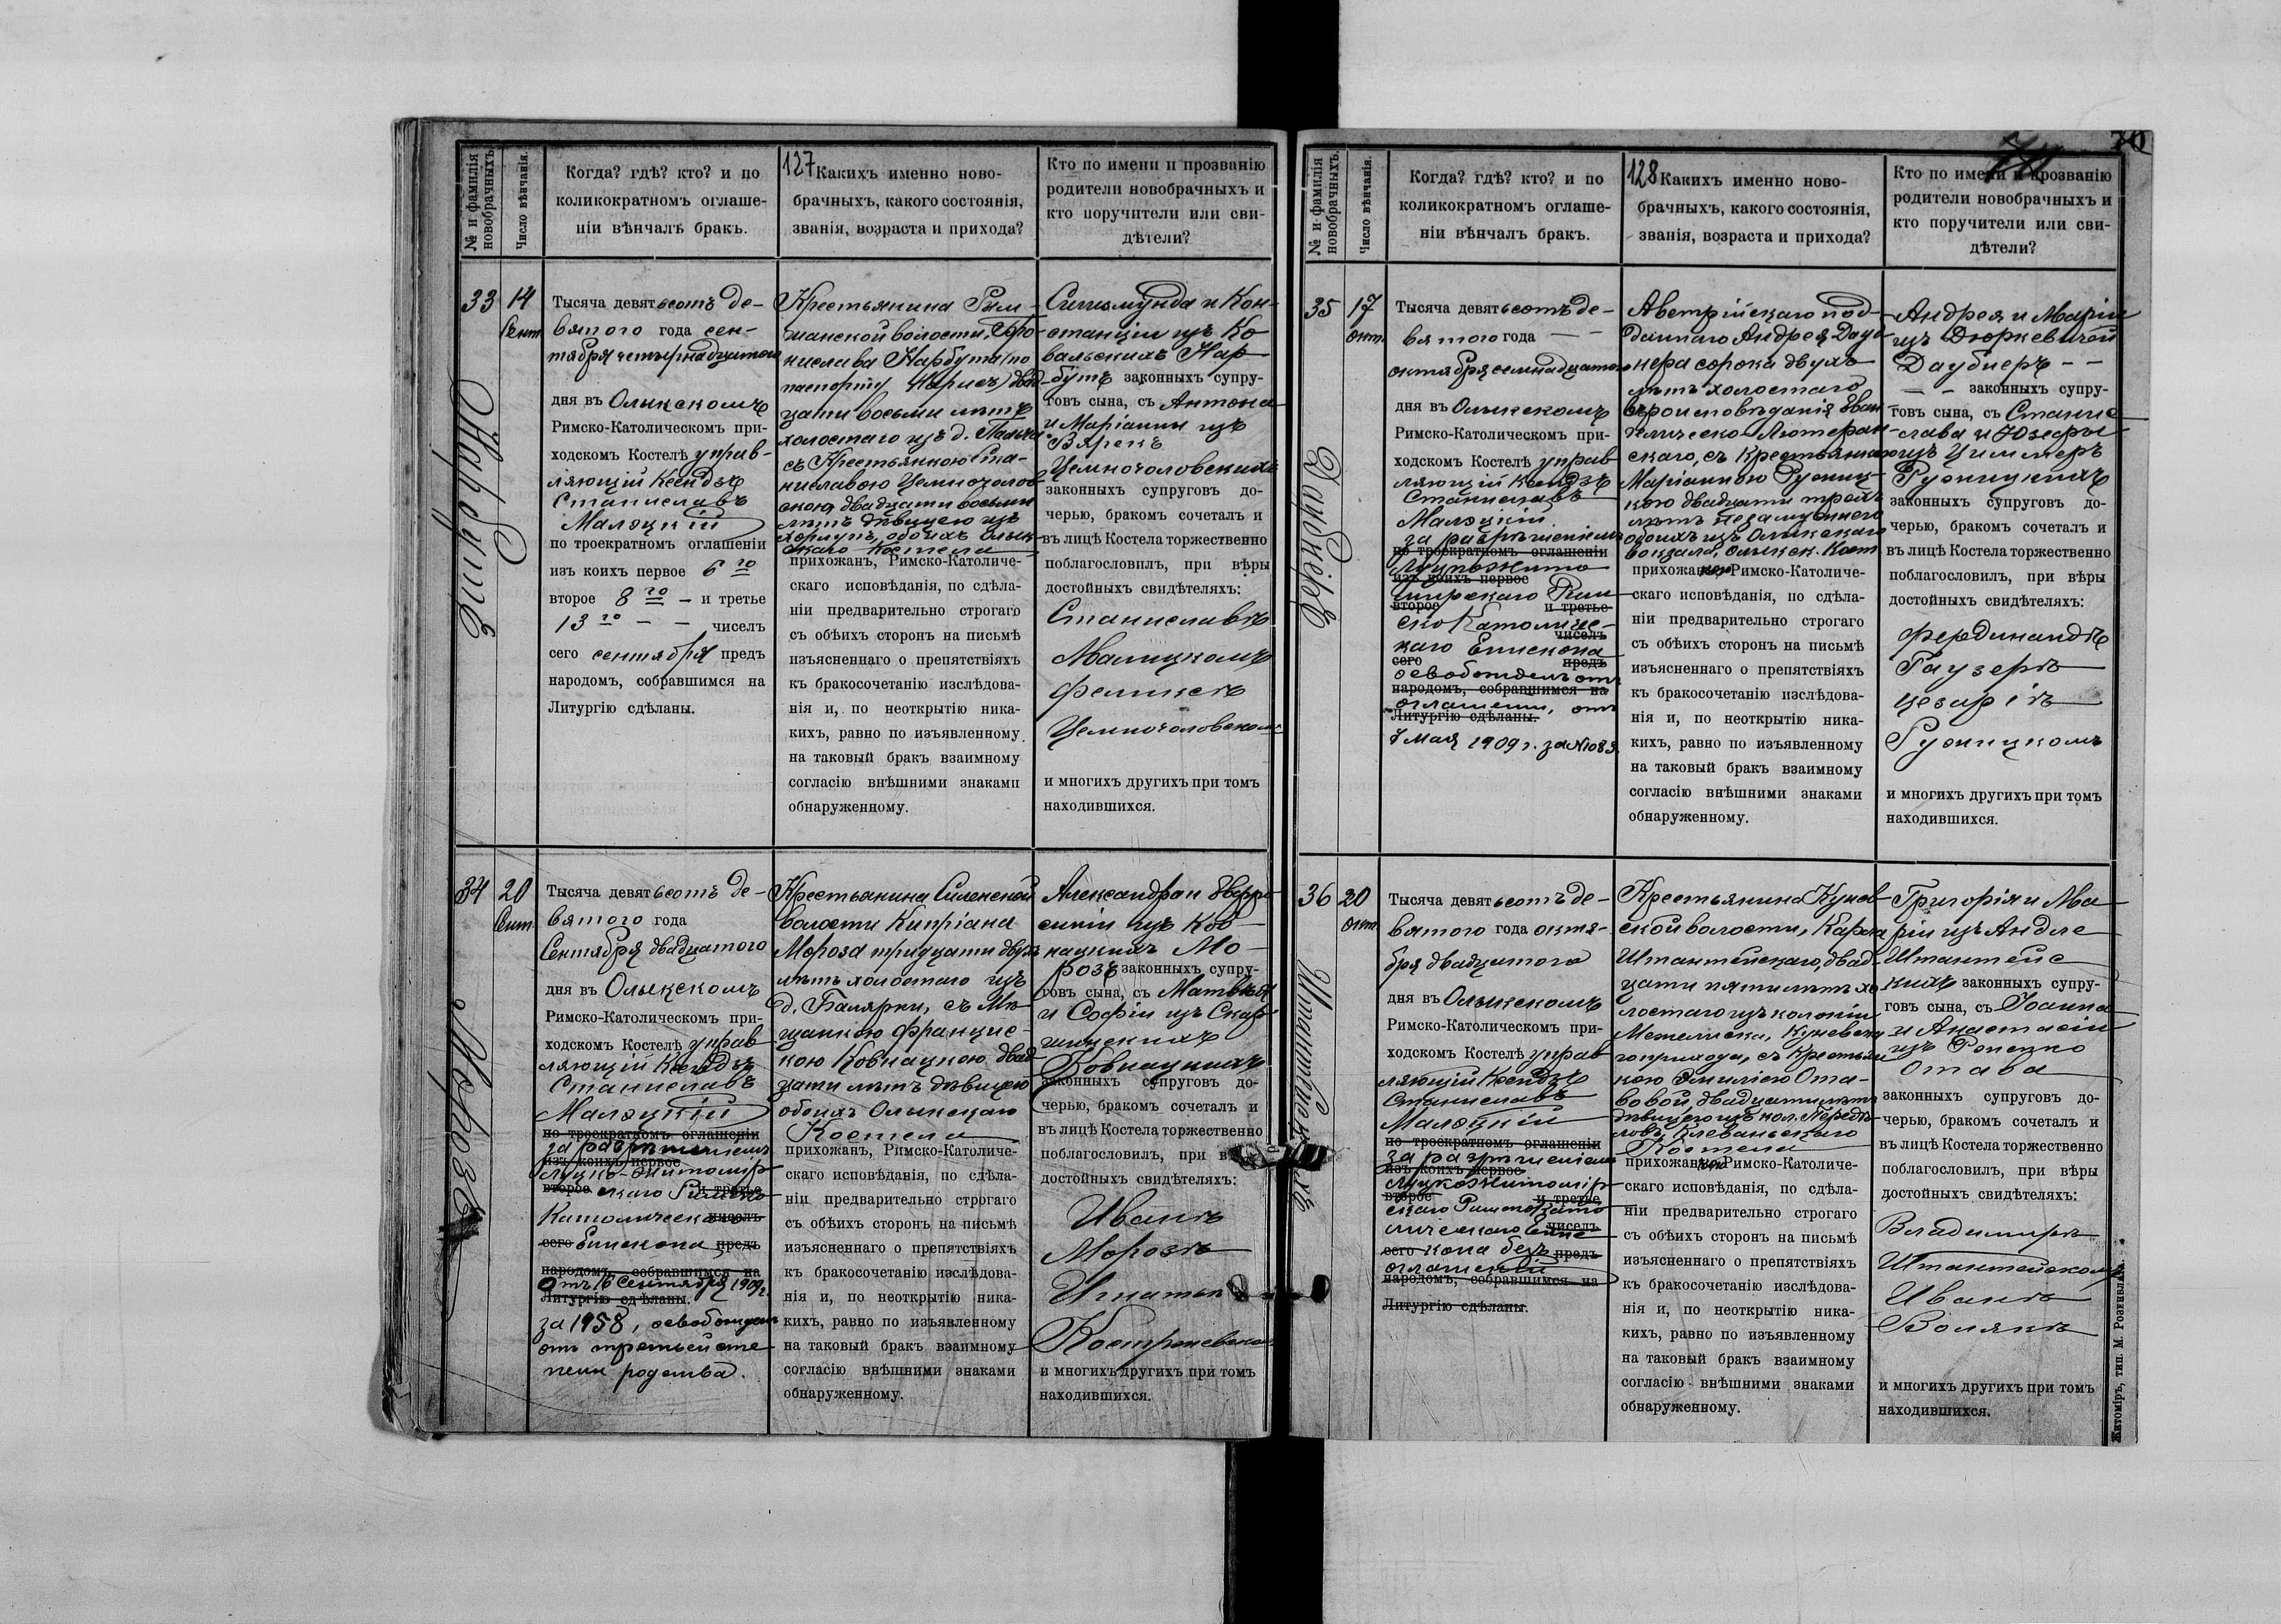 127
№ и фамилія новобрачныхъ.
Число вѣнчанія.
Когда? гдѣ? кто? и по
коликократномъ оглаше-
ніи вѣнчалъ бракъ.
Какихъ именно ново-
брачныхъ, какого состоянія,
званія, возраста и прихода?
Кто по имени и прозванію
родители новобрачныхъ и
кто поручители или сви-
дѣтели?
33
14
Сент.
Нарбутъ
Тысяча девятьсотъ де-
вятого года сен-
тября четырнадцатого
дня въ Олыкскомъ
Римско-Католическомъ при-
ходскомъ Костелѣ управ-
ляющій Ксендзъ
Станиславъ
Маляцкій
по троекратномъ оглашеніи
изъ коихъ первое 6го
второе 8го — и третье
13го — — чиселъ
сего сентября предъ
народомъ, собравшимся на
Литургію сдѣланы.
Крестьянина Рым-
манской волости,
нислава Нарбута (по
паспорту двад-
цати восьми лѣтъ
холостаго изъ д.
съ Крестьянкою Ста-
ниславою Цемночолов-
скою двадцати восьми
лѣтъ дѣвицею изъ
обоихъ Олык-
скаго Костела
прихожанъ, Римско-Католиче-
скаго исповѣданія, по сдѣла-
ніи предварительно строгаго
съ обѣихъ сторонъ на письмѣ
изъясненнаго о препятствіяхъ
къ бракосочетанію изслѣдова-
нія и, по неоткрытію ника-
кихъ, равно по изъявленному
на таковый бракъ взаимному
согласію внѣшними знаками
обнаруженному.
Сигизмунда и Кон-
станціи изъ Ко-
вальскихъ Нар-
бутъ законныхъ супру-
говъ сына, съ Антона
и Маріанны изъ
Цемночоловскихъ
законныхъ супруговъ до-
черью, бракомъ сочеталъ и
въ лицѣ Костела торжественно
поблагословилъ, при вѣры
достойныхъ свидѣтеляхъ:
Станиславъ
Малицкомъ
Феликсъ
Цемночоловскомъ
и многихъ другихъ при томъ
находившихся.
34
20
Сент.
Морозъ
Тысяча девятьсотъ де-
вятого года
Сентября двадцатого
дня въ Олыкскомъ
Римско-Католическомъ при-
ходскомъ Костелѣ управ-
ляющій Ксендзъ
Станиславъ
Маляцкій
по троекратномъ оглашеніи
за разрѣшеніемъ
изъ коихъ первое
Луцко-Житомир-
второе скаго Римско и третье
Католическаго чиселъ
сего Епископа предъ
народомъ, собравшимся на
отъ 16 Сентября 1909 г.
Литургію сдѣланы.
за 1958, освобожденъ
отъ третьей сте-
пени родства.
Крестьянина Силенской
волости Кипріана
Мороза тридцати двухъ
лѣтъ холостаго изъ
д. Балярки, съ Мѣ-
щанкою Францис-
кою Ковнацкою, двад-
цати лѣтъ дѣвицею
обоихъ Олыкскаго
Костела
прихожанъ, Римско-Католиче-
скаго исповѣданія, по сдѣла-
ніи предварительно строгаго
съ обѣихъ сторонъ на письмѣ
изъясненнаго о препятствіяхъ
къ бракосочетанію изслѣдова-
нія и, по неоткрытію ника-
кихъ, равно по изъявленному
на таковый бракъ взаимному
согласію внѣшними знаками
обнаруженному.
Александра и Евфро-
синіи изъ Ков-
нацкихъ Мо-
розъ законныхъ супру-
говъ сына, съ Матвѣя
и Софіи изъ Скар-
Ковнацкихъ
законныхъ супруговъ до-
черью, бракомъ сочеталъ и
въ лицѣ Костела торжественно
поблагословилъ, при
достойныхъ свидѣтеляхъ:
Иванъ
Морозъ
Игнатъ
Костржевскомъ
и многихъ другихъ при томъ
находившихся.
70
128
№ и фамилія новобрачныхъ.
Число вѣнчанія.
Когда? гдѣ? кто? и по
коликократномъ оглаше-
ніи вѣнчалъ бракъ.
Какихъ именно ново-
брачныхъ, какого состоянія,
званія, возраста и прихода?
Кто по имени и прозванію
родители новобрачныхъ и
кто поручители или сви-
дѣтели?
35
17
Окт.
Даубнеръ
Тысяча девятьсотъ де-
вятого года — —
октября семнадцатого
дня въ Олыкскомъ
Римско-Католическомъ при-
ходскомъ Костелѣ управ-
ляющій Ксендзъ
Станиславъ
Маляцкій
за разрѣшеніемъ
по троекратномъ оглашеніи
Луцко-Жито-
изъ коихъ первое
мирскаго Рим-
второе и третье
ско Католичес-
чиселъ
каго Епископа
сего предъ
освобожденъ отъ
народомъ, собравшимся на
оглашеніи, отъ
Литургію сдѣланы.
7 Мая 1909 г. за № 1083.
Австрійскаго под-
даннаго Андрея Дауб-
нера сорока двухъ
лѣтъ холостаго
вѣроисповѣданія Еван-
гелическо-Лютеран-
скаго, съ Крестьянкою
Маріанною Рудниц-
кою двадцати трехъ
лѣтъ незамужнею
обоихъ изъ Олыкскаго
вокзала, Олыкск. Кост.
прихожанкою Римско-Католиче-
скаго исповѣданія, по сдѣла-
ніи предварительно строгаго
съ обѣихъ сторонъ на письмѣ
изъясненнаго о препятствіяхъ
къ бракосочетанію изслѣдова-
нія и, по неоткрытію ника-
кихъ, равно по изъявленному
на таковый бракъ взаимному
согласію внѣшними знаками
обнаруженному.
Андрея и Маріи
изъ Дюркевичей
Даубнеръ — —
— — законныхъ супру-
говъ сына, съ Станис-
слава и Юзефы
изъ Циммеръ
Рудницкихъ
законныхъ супруговъ до-
черью, бракомъ сочеталъ и
въ лицѣ Костела торжественно
поблагословилъ, при вѣры
достойныхъ свидѣтеляхъ:
Фердинандъ
Гаузеръ
Цезарій
Рудницкомъ
и многихъ другихъ при томъ
находившихся.
36
20
Окт.
Штантейскихъ
Тысяча девятьсотъ де-
вятого года октя-
бря двадцатого
дня въ Олыкскомъ
Римско-Католическомъ при-
ходскомъ Костелѣ управ-
ляющій Ксендзъ
Станиславъ
Маляцкій
по троекратномъ оглашеніи
за разрѣшеніемъ
изъ коихъ первое
Луцко-Житомір-
второе и третье
скаго Римско-Като-
лическаго Епис- чиселъ
сего копа безъ предъ
оглашеній
народомъ, собравшимся на
Литургію сдѣланы.
Крестьянина Кунев-
ской волости, Карла
Штантейскаго, двад-
цати пяти лѣтъ хо-
лостаго изъ колоніи
Куневска-
го прихода, съ Крестьян-
кою Эмиліею Ота-
вовой, двадцати лѣтъ
дѣвицею изъ кол.
Клеваньскаго
Костела
прихожанкою Римско-Католиче-
скаго исповѣданія, по сдѣла-
ніи предварительно строгаго
съ обѣихъ сторонъ на письмѣ
изъясненнаго о препятствіяхъ
къ бракосочетанію изслѣдова-
нія и, по неоткрытію ника-
кихъ, равно по изъявленному
на таковый бракъ взаимному
согласію внѣшними знаками
обнаруженному.
Григорія и Ма-
ріи изъ Андле
Штантейс-
кихъ законныхъ супру-
говъ сына, съ Іоанна
и Анастасіи
изъ
Отава
законныхъ супруговъ до-
черью, бракомъ сочеталъ и
въ лицѣ Костела торжественно
поблагословилъ, при вѣры
достойныхъ свидѣтеляхъ:
Владимиръ
Штантейскомъ
Иванъ
Волякъ
и многихъ другихъ при томъ
находившихся.
Житоміръ, тип. М. Розенблатъ.